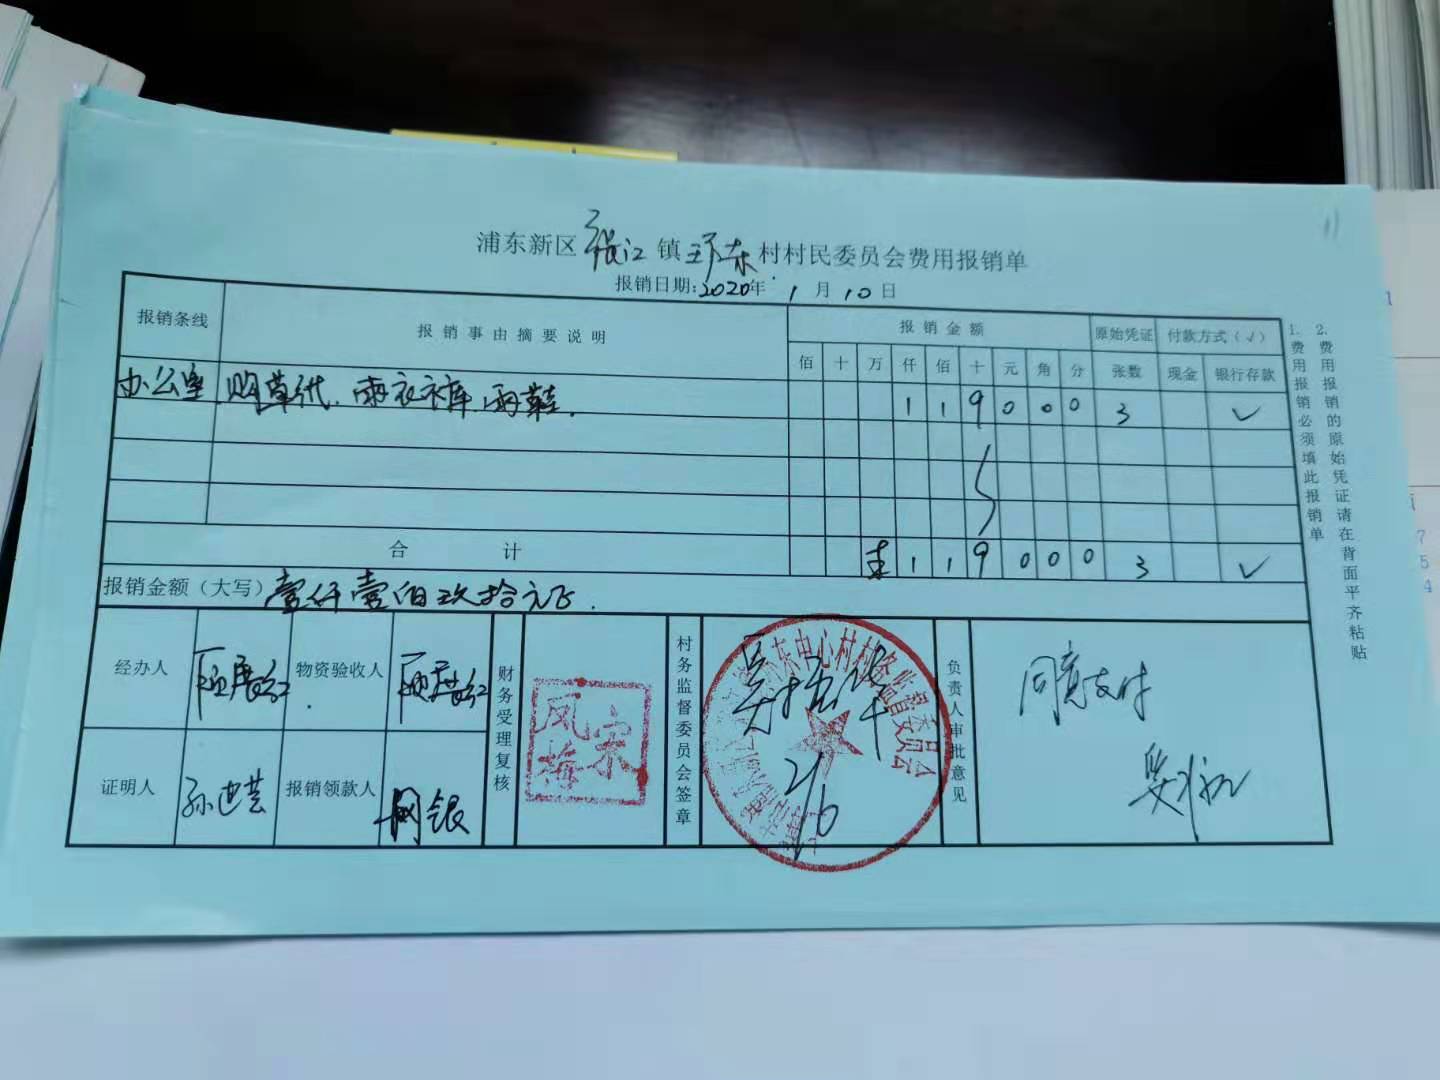 浦东新区张江镇环东村村民委员会费用报销单
报销日期:2020年1月10日
报销条线 报销事由摘要说明 报销金额 原始凭证 付款方式(√)
佰 十 万 仟 佰 十 元 角 分 张数 现金 银行存款
办公室 购草纸、雨衣裤、雨鞋. 1 1 9 0 0 0 3 √
合计 1 1 9 0 0 0 3 √
报销金额(大写) 壹仟壹佰玖拾元正.
经办人 物资验收人
证明人 孙 报销领款人 网银
财务受理复核
宋凤梅
村务监督委员会签章
东中心村村务监督委员会
吴
负责人审批意见
同意支付
1.费用报销必须填此报销单
2.费用报销的原始凭证请在背面平齐粘贴